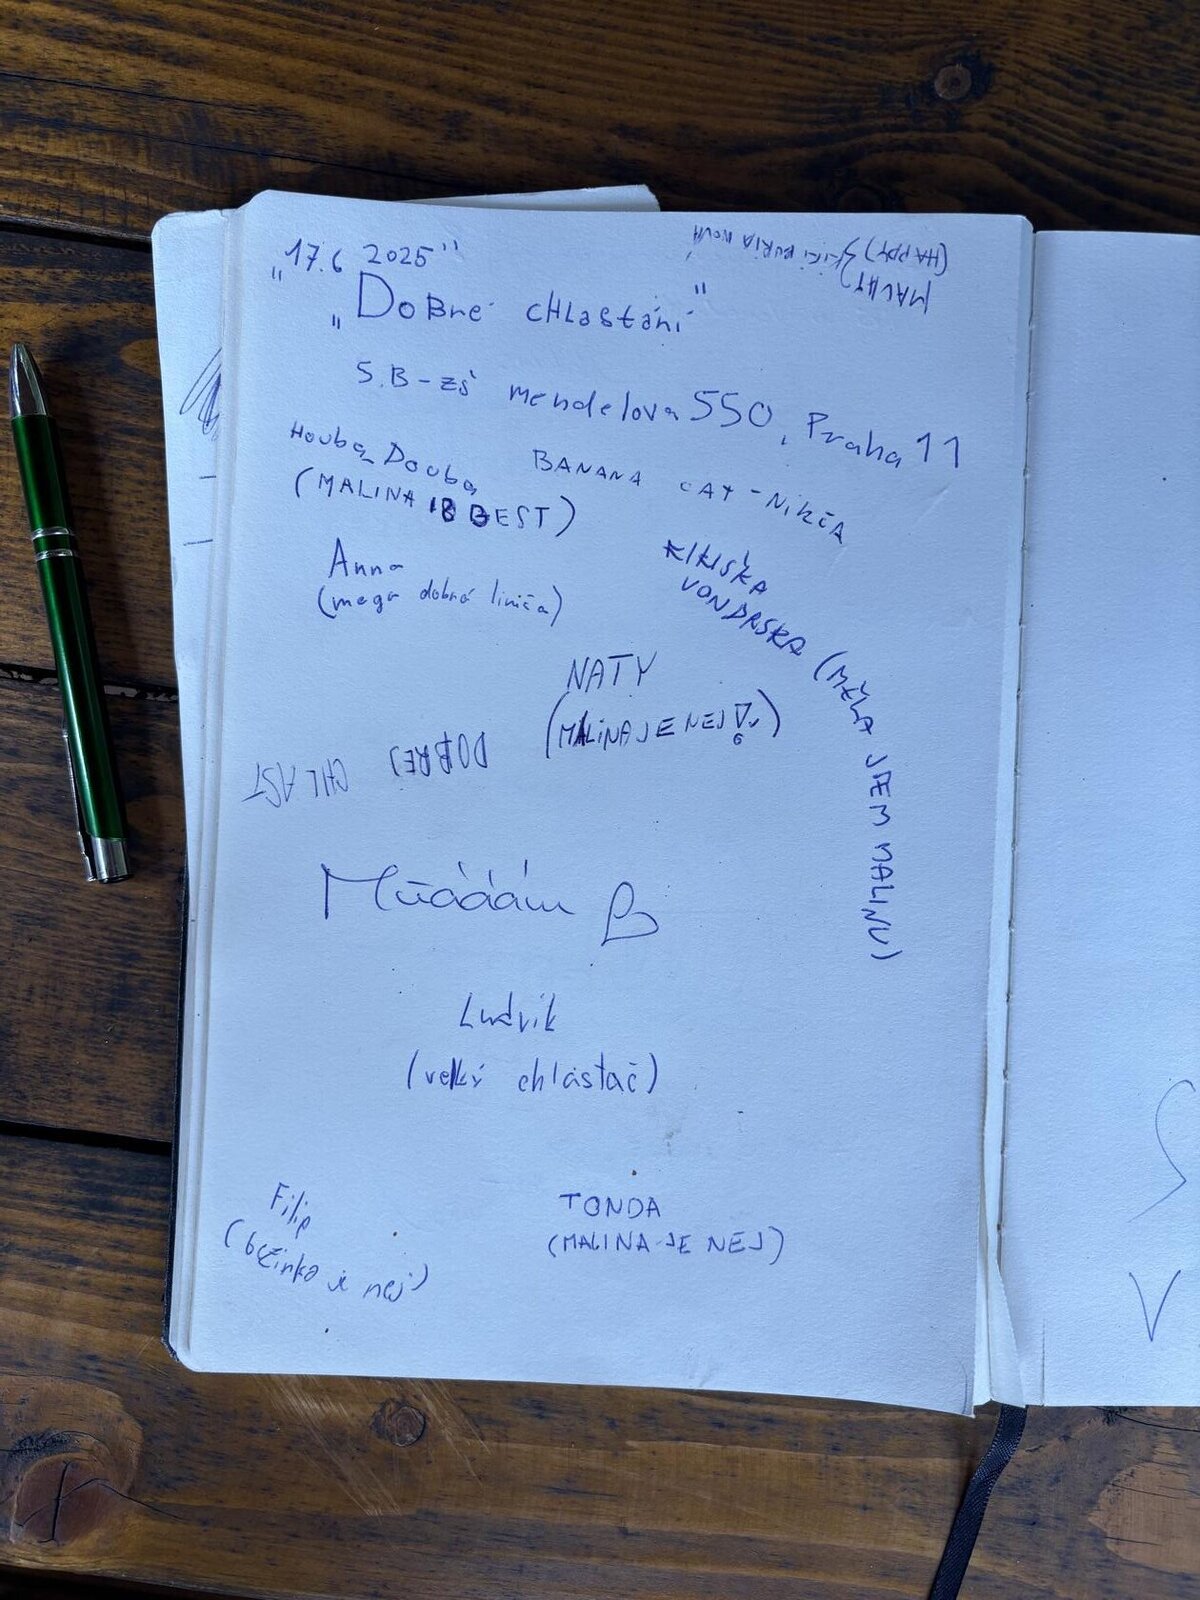 „17.6 2025"
„Dobré chlastání"
5.B - ZŠ mendelova 550, Praha 11
Houba Douba
(MALINA IS BEST)
BANANA CAT - Nikča
Anna
(mega dobrá limča)
KIKIŠKA
VONDRSKA (MĚLA JSEM MALINU)
NATY
(MALINA JE NEJ!)
DOBREJ CHLAST
Ludvik
(velký chlastač)
Filip
(bezinka je nej)
TONDA
(MALINA JE NEJ)
(HAPPY)